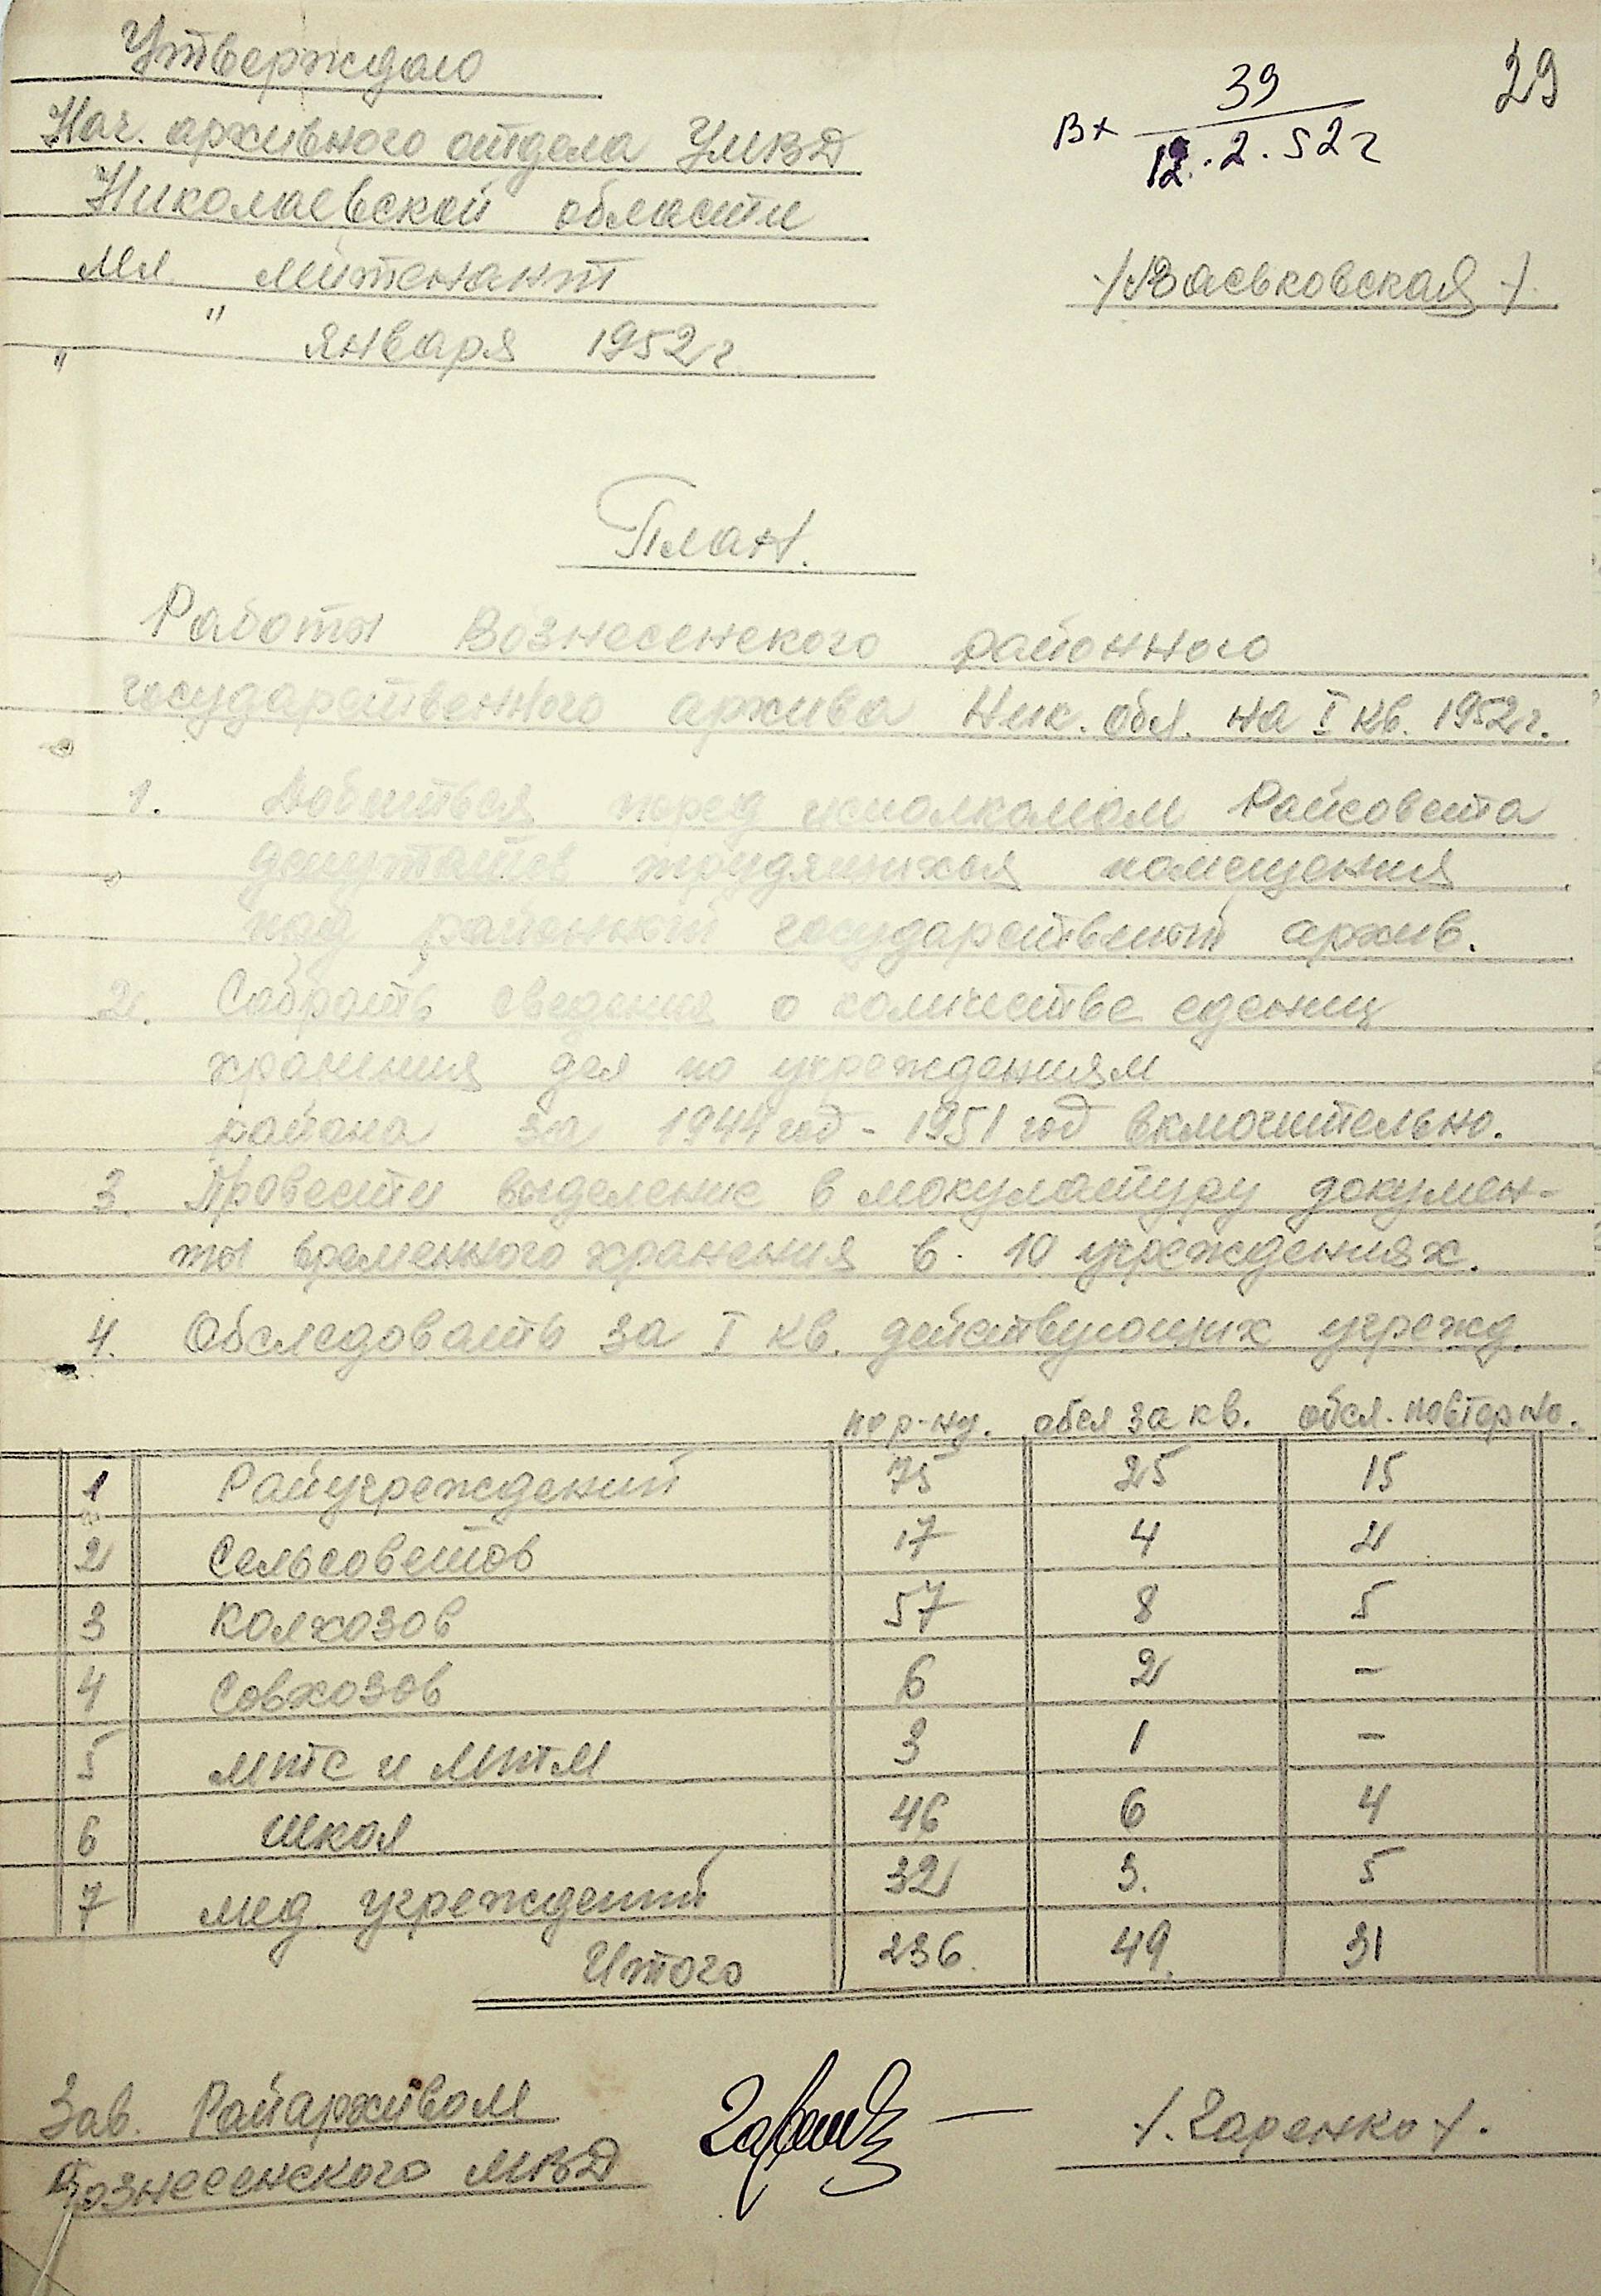 Утверждаю
29
Нач. архивного отдела УМВД
Вх 39
12.2.52г
Николаевской области
Мл лейтенант /Васьковская/
" " января 1952г
План.
Работы Вознесенского районного
государственного архива Ник. обл. на I кв. 1952г.
1. Добиться перед исполкомом Райсовета
депутатов трудящихся помещения
под районный государственный архив.
2. Собрать сведения о количестве едениц
хранения дел по учреждениям
района за 1944 год - 1951 год включительно.
3. Провести выделение в мокулатуру докумен-
ты временного хранения в. 10 учреждениях.
4. Обследовать за I кв. действующих учрежд.
по р-ну. обсл за кв. обсл. повторно.
1 Райучреждений 75 25 15
2 Сельсоветов 17 4 2
3 Колхозов 57 8 5
4 Совхозов 6 2 -
5 мтс и мтм 3 1 -
6 школ 46 6 4
7 мед. учреждений 32 3. 5
Итого 236. 49. 31
Зав. Райархивом
Вознесенского МВД /.Гаренко/.